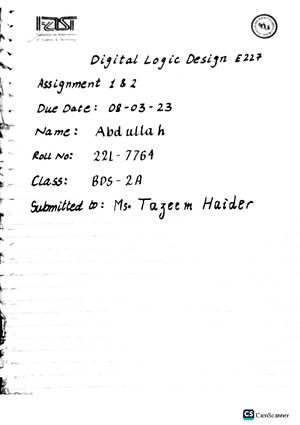 FAST
Digital Logic Design E227
Assignment 1 & 2
Due Date: 08-03-23
Name: Abdullah
Roll No: 22L-7764
Class: BDS-2A
Submitted to: Ms. Tazeem Haider
CS CamScanner